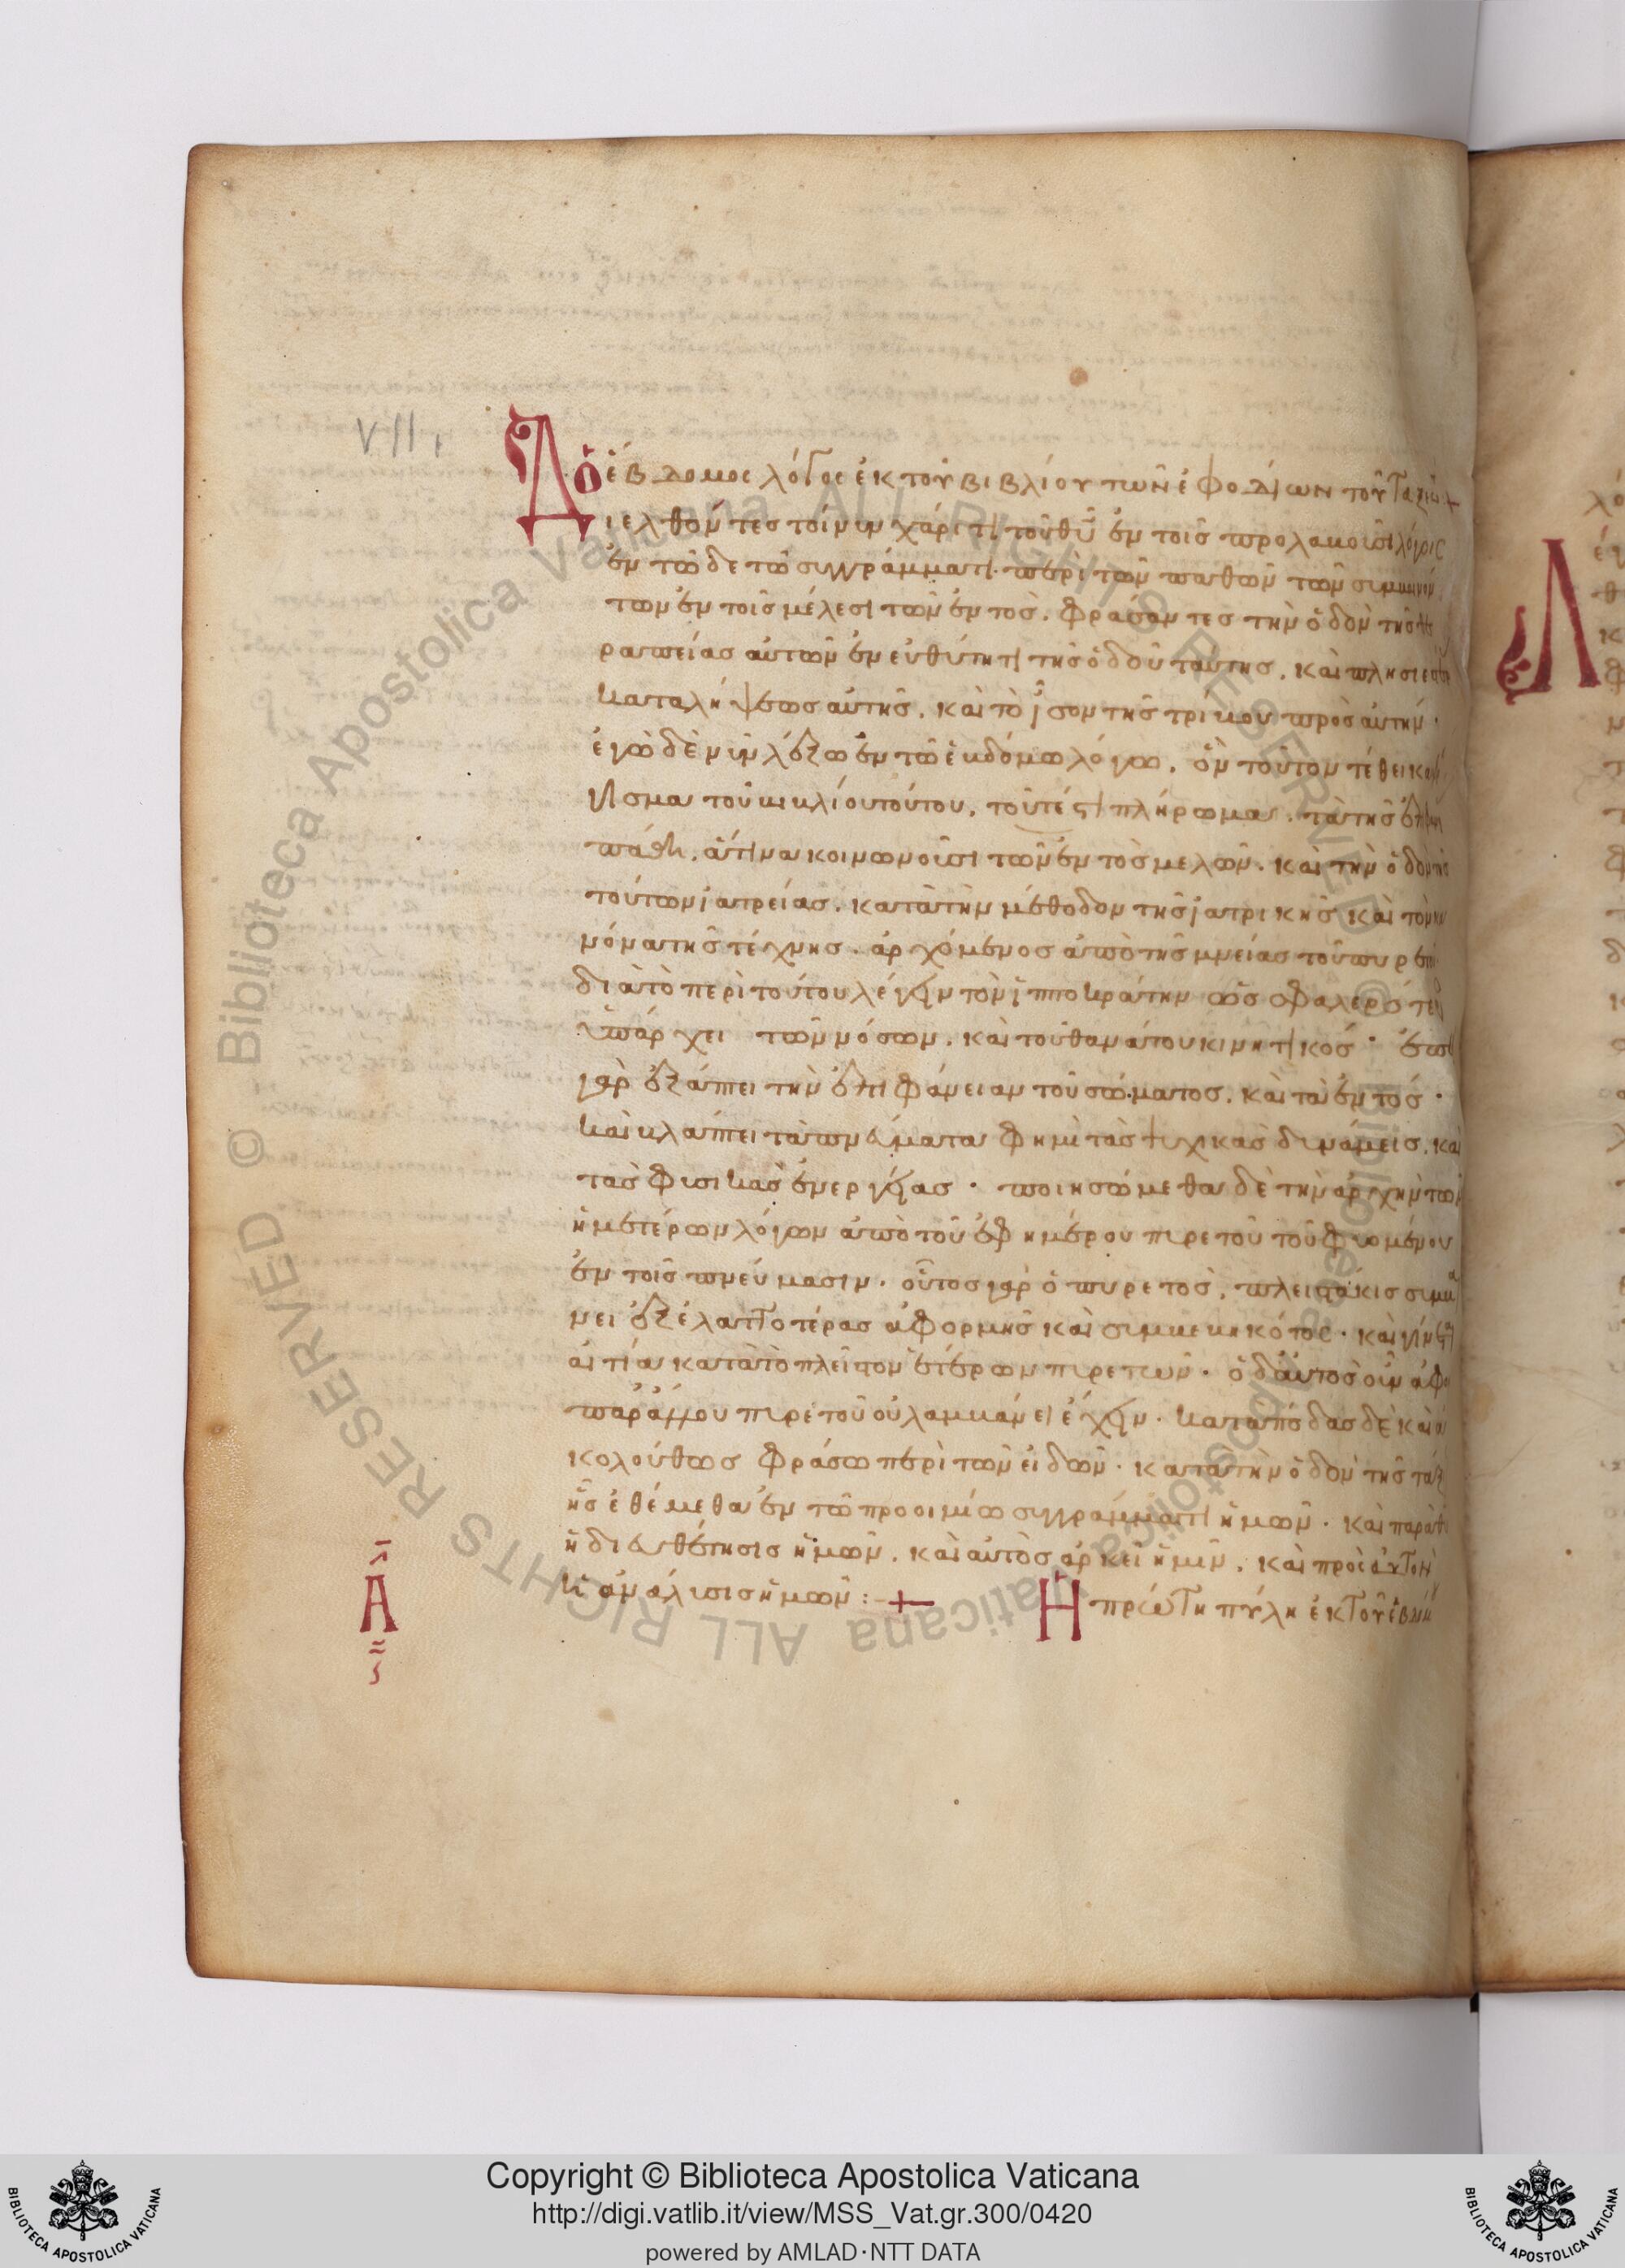 VII,
Ὁ ἕβδομος λόγος ἐκ τοῦ βιβλίου τῶν ἐφοδίων τοῦ
Διελθόντες τοίνυν χάριτι τοῦ θῦ ἐν τοῖς προλαβοῦσι λόγοις
ἐν τῶδε τῶ συγγράμματι. περὶ τῶν παθῶν τῶν συμβαινόν
των ἐν τοῖς μέλεσι τῶν ἐντὸς. φράσαντες τὴν ὁδὸν τῆς θε
ραπείας αὐτῶν ἐν εὐθύτητι τῆς ὁδοῦ ταύτης. καὶ
καταλήψεως αὐτῆς. καὶ τὸ ἶσον τῆς τρίβου πρὸς αὐτήν.
ἐγὼ δὲ νῦν λέξω ἐν τῶ ἑβδόμω λόγω. ὃν τοῦτον τέθεικα
τοῦ βιβλίου τούτου. τοῦτέστι πλήρωμα. τὰ τῆς
πάθη. ἅτινα κοινωνοῦσι τῶν ἐντὸς μελῶν. καὶ τὴν ὁδὸν τῆς
τούτων ἰατρείας. κατὰ τὴν μέθοδον τῆς ἰατρικῆς καὶ τὸν κα
νόνα τῆς τέχνης. ἀρχόμενος ἀπὸ τῆς μνείας τοῦ πυρετοῦ
διὰ τὸ περὶ τούτου λέγειν τὸν ἱπποκράτην ὡς σφαλερώτερος
ὑπάρχει τῶν νόσων. καὶ τοῦ θανάτου κινητικός.
γὰρ ἐξάπτει τὴν ἐπιφάνειαν τοῦ σώματος. καὶ τὰ ἐντός.
καὶ βλάπτει τὰ πνεύματα φημὶ τὰς ψυχικὰς δυνάμεις. καὶ
τὰς φυσικὰς ἐνεργείας. ποιησώμεθα δὲ τὴν ἀρχὴν τῶν
ἡμετέρων λόγων ἀπὸ τοῦ ἐφημέρου πυρετοῦ τοῦ φυομένου
ἐν τοῖς πνεύμασιν. οὗτος γὰρ ὁ πυρετὸς, πλειστάκις συμβαί
νει ἐξ ἐλαττοτέρας ἀφορμῆς καὶ συμβεβηκότος. καὶ γίνεται
αἰτία κατὰ τὸ πλεῖστον ἑτέρων πυρετῶν. ὁ δ' αὐτὸς οὖν ἀφ
παρ' ἄλλου πυρετοῦ οὐ λαμβάνει ἔχειν. κατὰ πόδας δὲ καὶ ἀ
κολούθως φράσω περὶ τῶν εἰδῶν. κατὰ τὴν ὁδὸν τῆς τάξ
ἧς ἐθέμεθα ἐν τῶ προοιμίω συγγράμματι ἡμῶν. καὶ παρὰ
ἡ διευθέτησις ἡμῶν. καὶ αὐτὸς ἀρκεῖ ἡμῖν. καὶ πρὸς αὐτὸν
ἡ ἀνάλυσις ἡμῶν:-+ Ἡ πρώτη πύλη ἐκ τοῦ ἑβδόμου
Α
Copyright © Biblioteca Apostolica Vaticana
http://digi.vatlib.it/view/MSS_Vat.gr.300/0420
powered by AMLAD·NTT DATA
BIBLIOTECA APOSTOLICA VATICANA
BIBLIOTECA APOSTOLICA VATICANA
© Biblioteca Apostolica Vaticana ALL RIGHTS RESERVED © Biblioteca Apostolica Vaticana ALL RIGHTS RESERVED